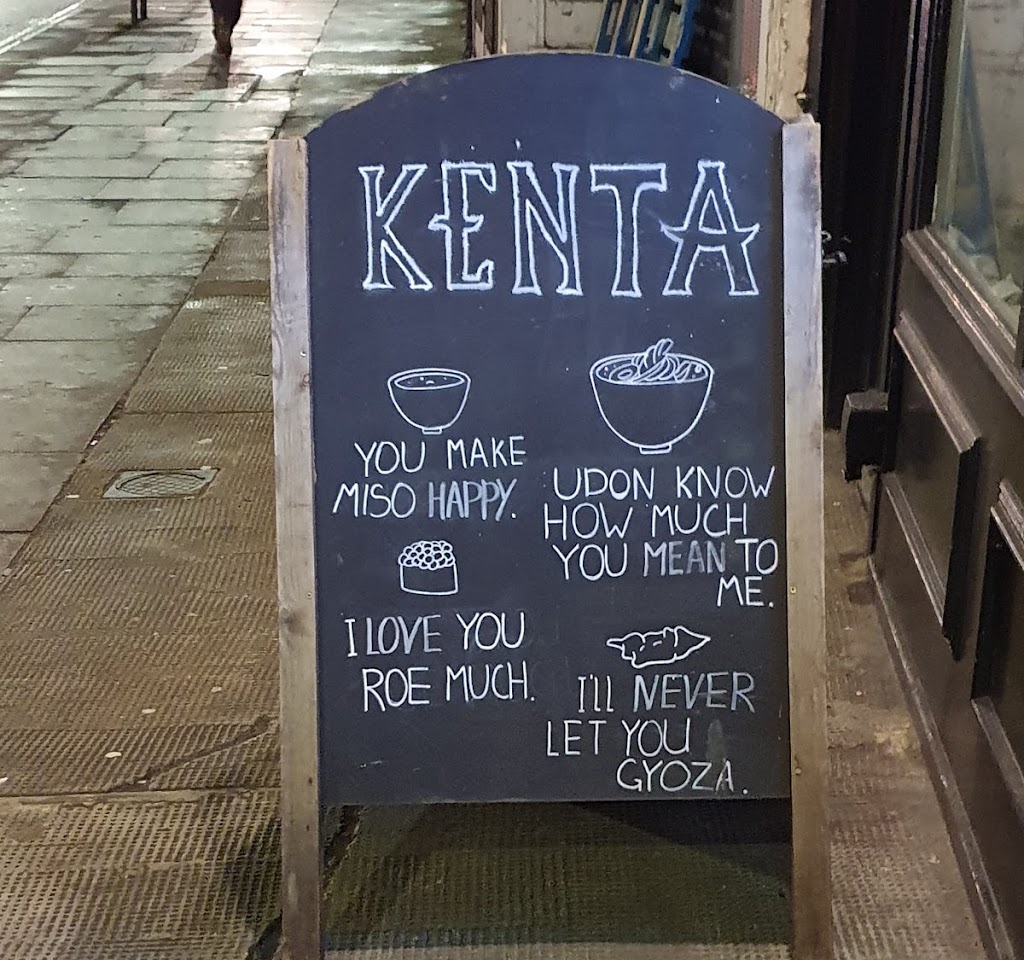 KENTA
YOU MAKE
MISO HAPPY.
UDON KNOW
HOW MUCH
YOU MEAN TO
ME.
I LOVE YOU
ROE MUCH.
I'll NEVER
LET YOU
GYOZA.